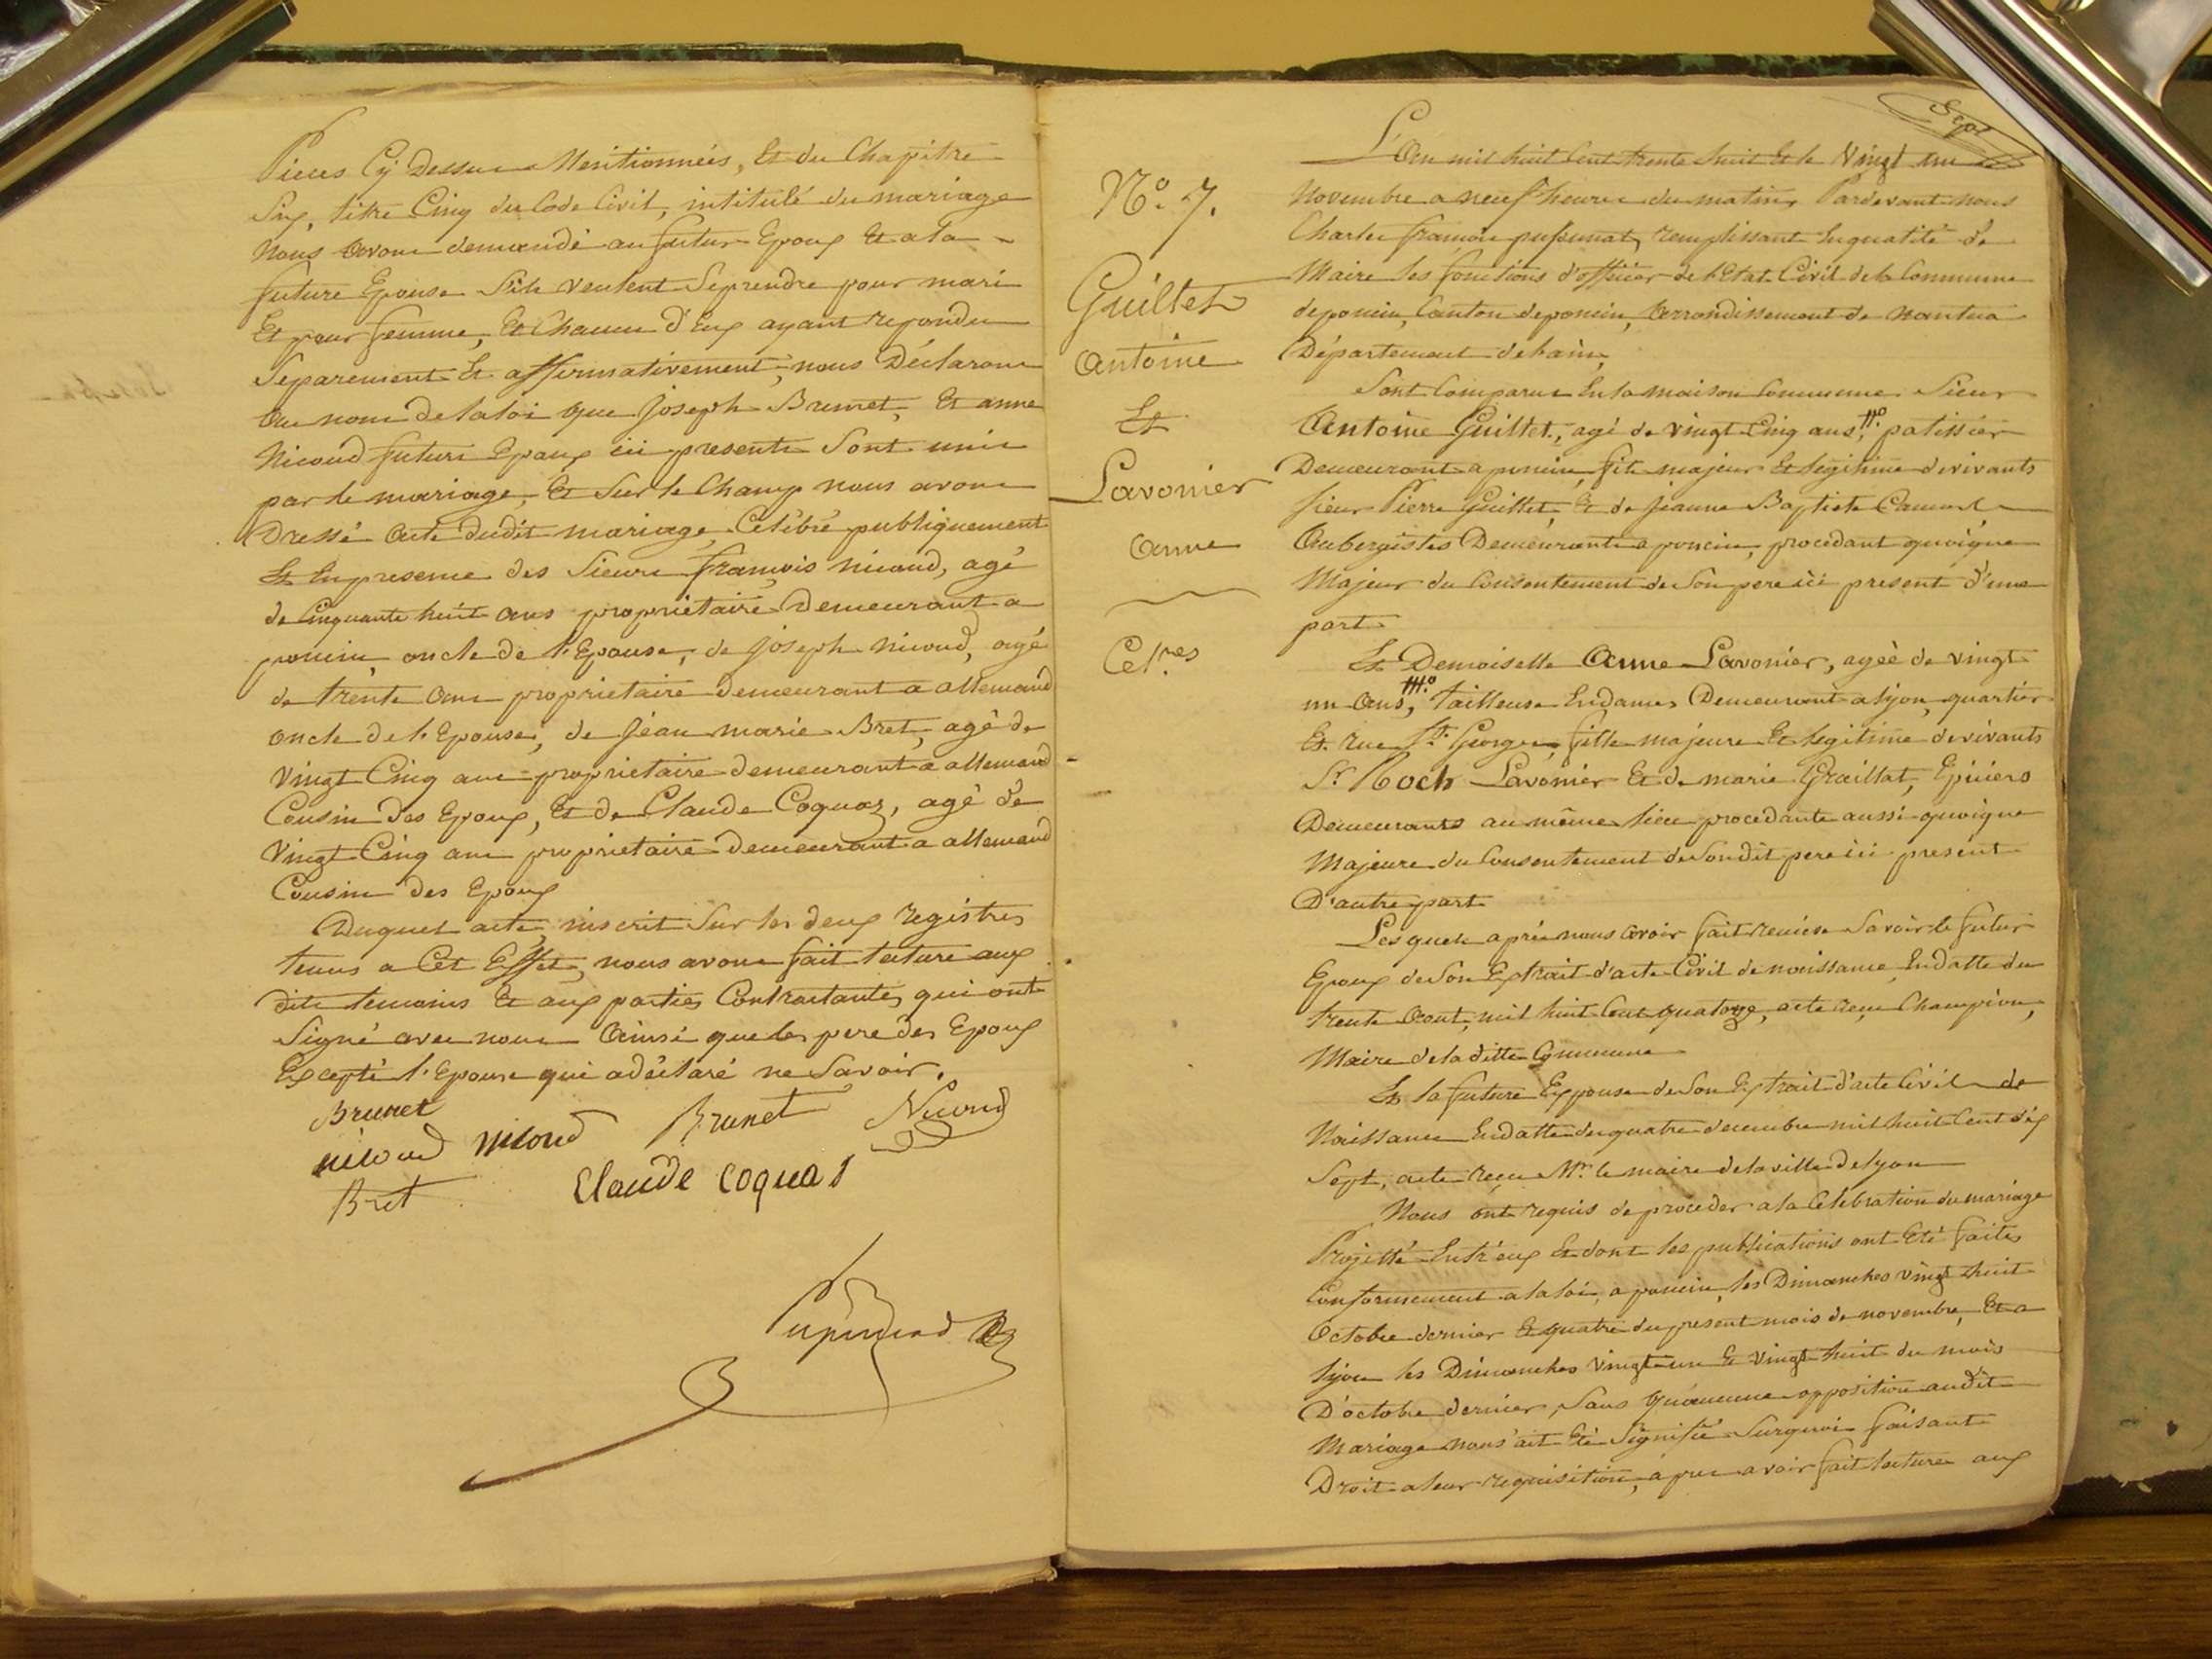 Pieces Cy Dessus Mentionnées, Et du Chapitre
Six, titre Cinq du Code Civil, intitulé du mariage
Nous avons demandé au futur Epoux Et a la
future Epouse S'ils veulent Se prendre pour mari
Et pour femme, Et Chacun d'Eux ayant repondu
Separement Et affirmativement, nous Déclarons
Au nom de la loi que Joseph Brunet, Et anne
Nicoud futurs Epoux ici presents Sont unis
par le mariage, Et Sur le Champ nous avons
Dressé Acte dudit mariage, Celébré publiquement
Et En presence des Sieurs françois nicoud, agé
de Cinquante huit ans proprietaire Demeurant a
poncin, oncle de l'Epouse, de joseph nicoud, agé
de trente ans proprietaire demeurant a allemand
oncle de l'Epouse, de Jean marie Bret, agé de
Vingt Cinq ans proprietaire demeurant a allemand
Cousin des Epoux, Et de Claude Coquaz, agé de
Vingt Cinq ans proprietaire Demeurant a allemand
Cousin des Epoux
Duquel acte, inscrit Sur les deux registres
tenus a Cet Effet, nous avons fait lecture aux
dits temoins Et aux parties Contractantes, qui ont
Signé avec nous Ainsi que les pere des Epoux
Excepté l'Epouse qui a déclaré ne Savoir.
Brunet
nicoud nicoud Brunet Nicoud
Bret Claude Coquas
Sept
N.o 7.
Guillet
Antoine
Et
Lavonier
Anne
Cel.res
L'An mil huit Cent trente huit Et le Vingt un
Novembre a neuf heures du matin, Pardevant nous
Charles françois remplissant En qualité de
Maire les fonctions d'officier de l'Etat Civil de la Commune
de poncin, Canton de poncin, Arrondissement de nantua
Département de l'ain,
Sont Comparus En la maison Commune Sieur
Antoine Guillet, agé de vingt Cinq ans, patissier
Demeurant a poncin, fils majeur Et legitime de vivants
Sieur Pierre Guillet, Et de Jeanne Baptiste
Aubergistes Demeurants a poncin, procedant quoique
Majeur du Consentement de Son pere ici present d'une
part
Et Demoiselle Anne Lavonier, ageé de vingt
un Ans, tailleuse En dames Demeurant a lyon, quartier
Et rue S.t George, fille majeure Et legitime de vivants
S.r Roch Lavonier Et de marie Graillat, Epiciers
Demeurants au même lieu procedante aussi quoique
Majeure du Consentement de Son dit pere ici present
D'autre part
Lesquels aprés nous avoir fait remise Savoir le futur
Epoux de Son Extrait d'acte Civil de naissance, En datte du
trente Aout, mil huit Cent quatorze, acte reçu Champion,
Maire de la ditte Commune
Et la future Epouse de Son Extrait d'acte Civil de
Naissance En datte du quatre decembre mil huit Cent dix
Sept, acte reçu M.r le maire de la ville de lyon
Nous ont requis de proceder a la Celebration du mariage
Projetté Entr'eux Et dont les publications ont Eté faites
Conformement a la loi, a poncin, les Dimanches vingt huit
Octobre dernier Et quatre du present mois de novembre, Et a
lyon les Dimanches vingt un Et Vingt huit du mois
D'octobre dernier, Sans qu'aucune opposition audit
Mariage nous ait Eté Signifié Surquoi faisant
Droit a leur requisition, apres avoir fait lecture aux